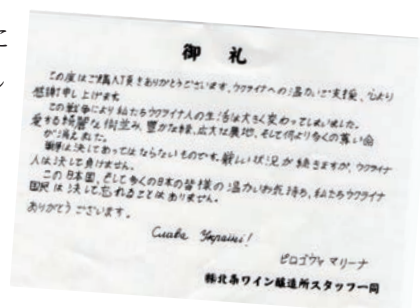 に
御礼
この度はご購入頂きありがとうございます。ウクライナへの温かいご支援、心より
感謝申し上げます。
この戦争により私たちウクライナ人の生活は大きく変わってしまいました。
愛する綺麗な街並み、豊かな緑、広大な農地、そして何より多くの尊い命
が消えました。
戦争は決してあってはならないものです。厳しい状況が続きますが、ウクライナ
人は決して負けません。
この日本国、そして多くの日本の皆様の温かいお気持ち、私たちウクライナ
国民は決して忘れることはありません。
ありがとうございます。
Слава Україні!
ピロゴヴァ マリーナ
㈱北条ワイン醸造所スタッフ一同